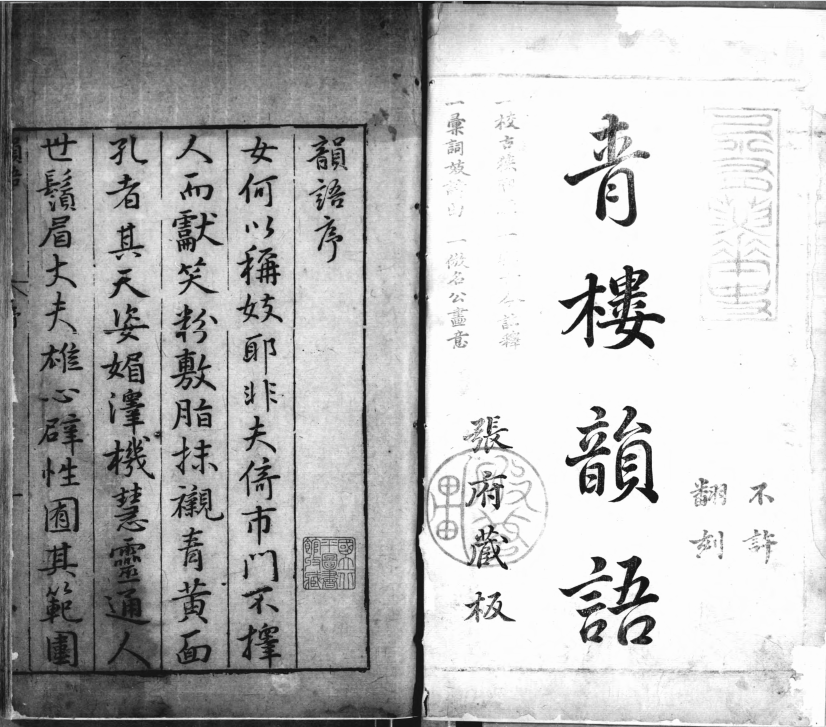 不許
翻刻
青樓韻語
張府藏板
一校古 一 今註釋
一彙詞 一倣名公畫意
韻語序
女何以稱妓耶非夫倚市門不擇
人而獻笑粉敷脂抹襯青黄面
孔者其天姿媚澤機慧靈通人
世鬚眉丈夫雄心辟性囿其範圍